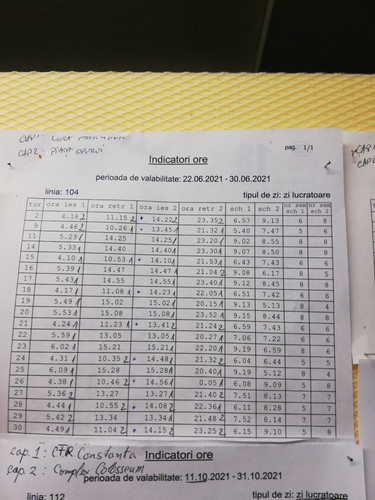 CAP2: PIAȚA
pag. 1/1
Indicatori ore
perioada de valabilitate: 22.06.2021 - 30.06.2021
linia: 104 tipul de zi: zi lucratoare
tur ora ies 1 ora retr 1 ora ies 2 ora retr 2 sch 1 sch 2 nr sem sch 1 nr sem sch 2
2 4.18 2 11.15 2 * 14.22 2 23.35 2 6.57 9.13 6 6
9 4.46 2 10.26 1 * 13.45 1 21.32 1 5.40 7.47 5 6
11 5.23 1 14.25 14.25 1 23.20 1 9.02 8.55 8 8
14 5.33 1 14.40 14.40 1 23.30 1 9.07 8.50 8 8
15 4.10 1 10.53 1 * 14.10 1 21.53 1 6.43 7.43 6 6
16 5.39 1 14.47 14.47 1 21.04 2 9.08 6.17 8 5
17 5.43 1 14.55 14.55 1 23.40 1 9.12 8.45 8 8
18 4.17 1 11.08 1 * 14.23 1 22.05 1 6.51 7.42 6 6
19 5.49 1 15.02 15.02 1 20.15 1 9.13 5.13 8 4
20 5.53 1 15.08 15.08 1 23.52 1 9.15 8.44 8 8
21 4.24 1 11.23 1 * 13.41 2 21.24 2 6.59 7.43 6 6
22 5.59 1 13.05 13.05 1 20.27 1 7.06 7.22 6 6
23 6.02 1 15.21 15.21 1 22.20 1 9.19 6.59 8 6
24 4.31 1 10.35 2 * 14.48 1 21.32 1 6.04 6.44 5 5
25 6.09 1 15.28 15.28 1 20.40 1 9.19 5.12 8 4
26 4.38 1 10.46 2 * 14.56 1 0.05 1 6.08 9.09 5 8
27 5.36 2 13.27 13.27 1 21.40 2 7.51 8.13 7 7
28 4.44 1 10.55 2 * 14.08 2 22.36 1 6.11 8.28 5 7
29 5.42 2 13.34 13.34 1 21.48 2 7.52 8.14 7 7
30 4.49 1 11.04 2 * 14.15 2 23.25 2 6.15 9.10 5 8
cap. 1: CFR Constanta Indicatori ore
cap. 2: Complex Colosseum
perioada de valabilitate: 11.10.2021 - 31.10.2021
linia: 112 tipul de zi: zi lucratoare